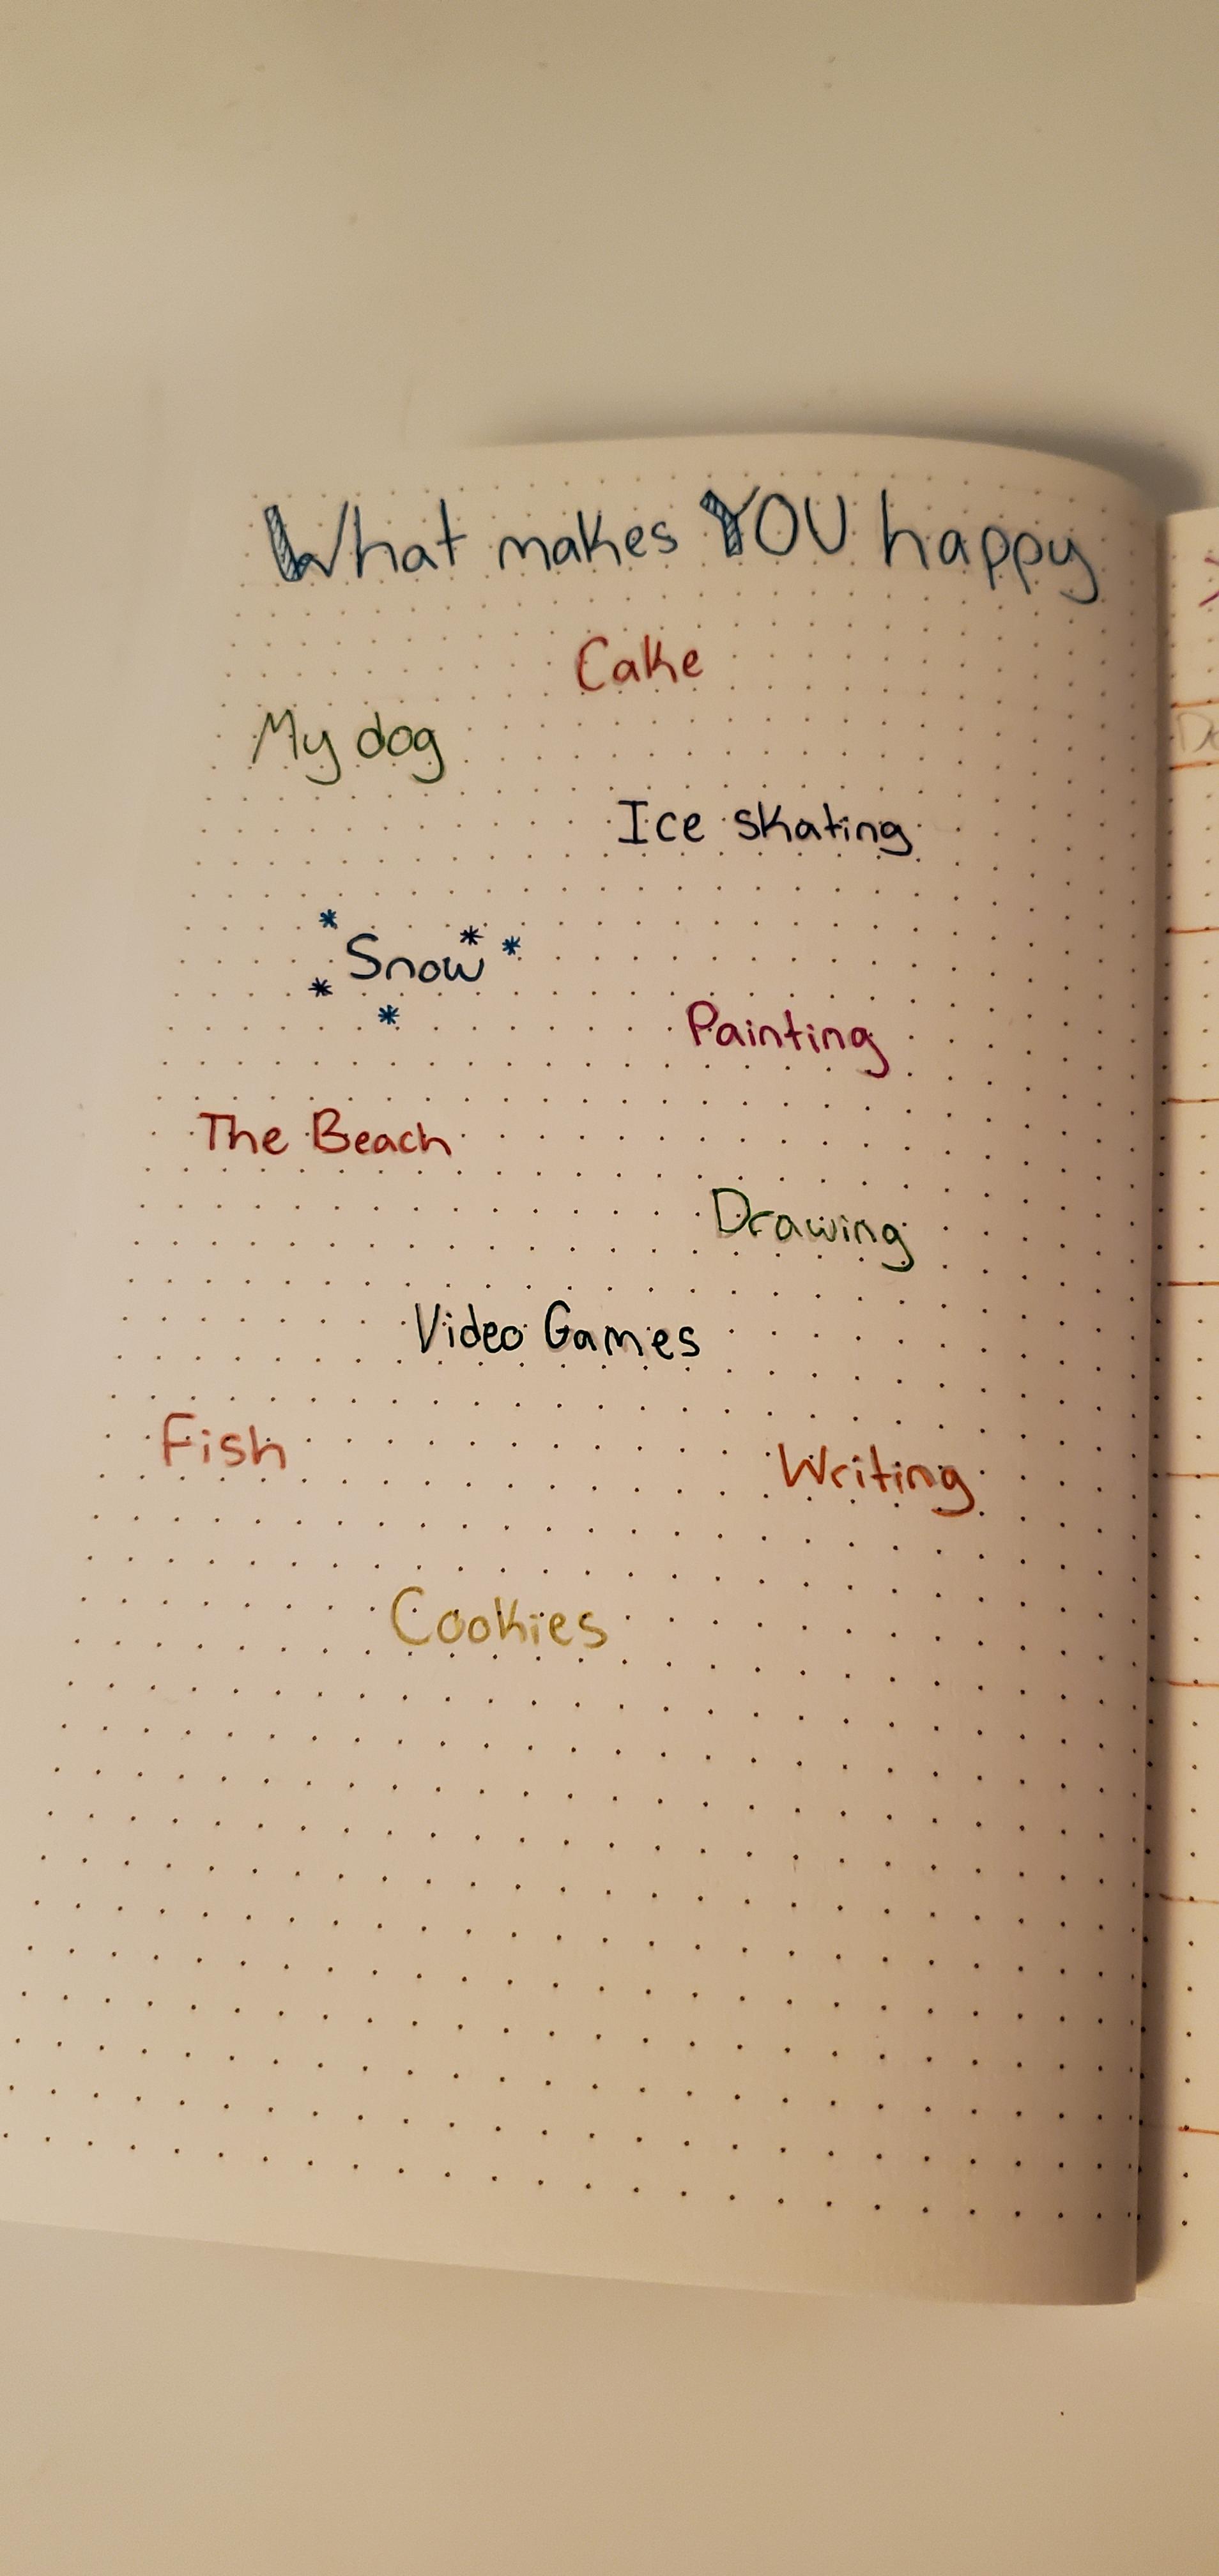 What makes YOU happy
Cake
My dog
Ice skating
Snow
Painting
The Beach
Drawing
Video Games
Fish
Writing
Cookies